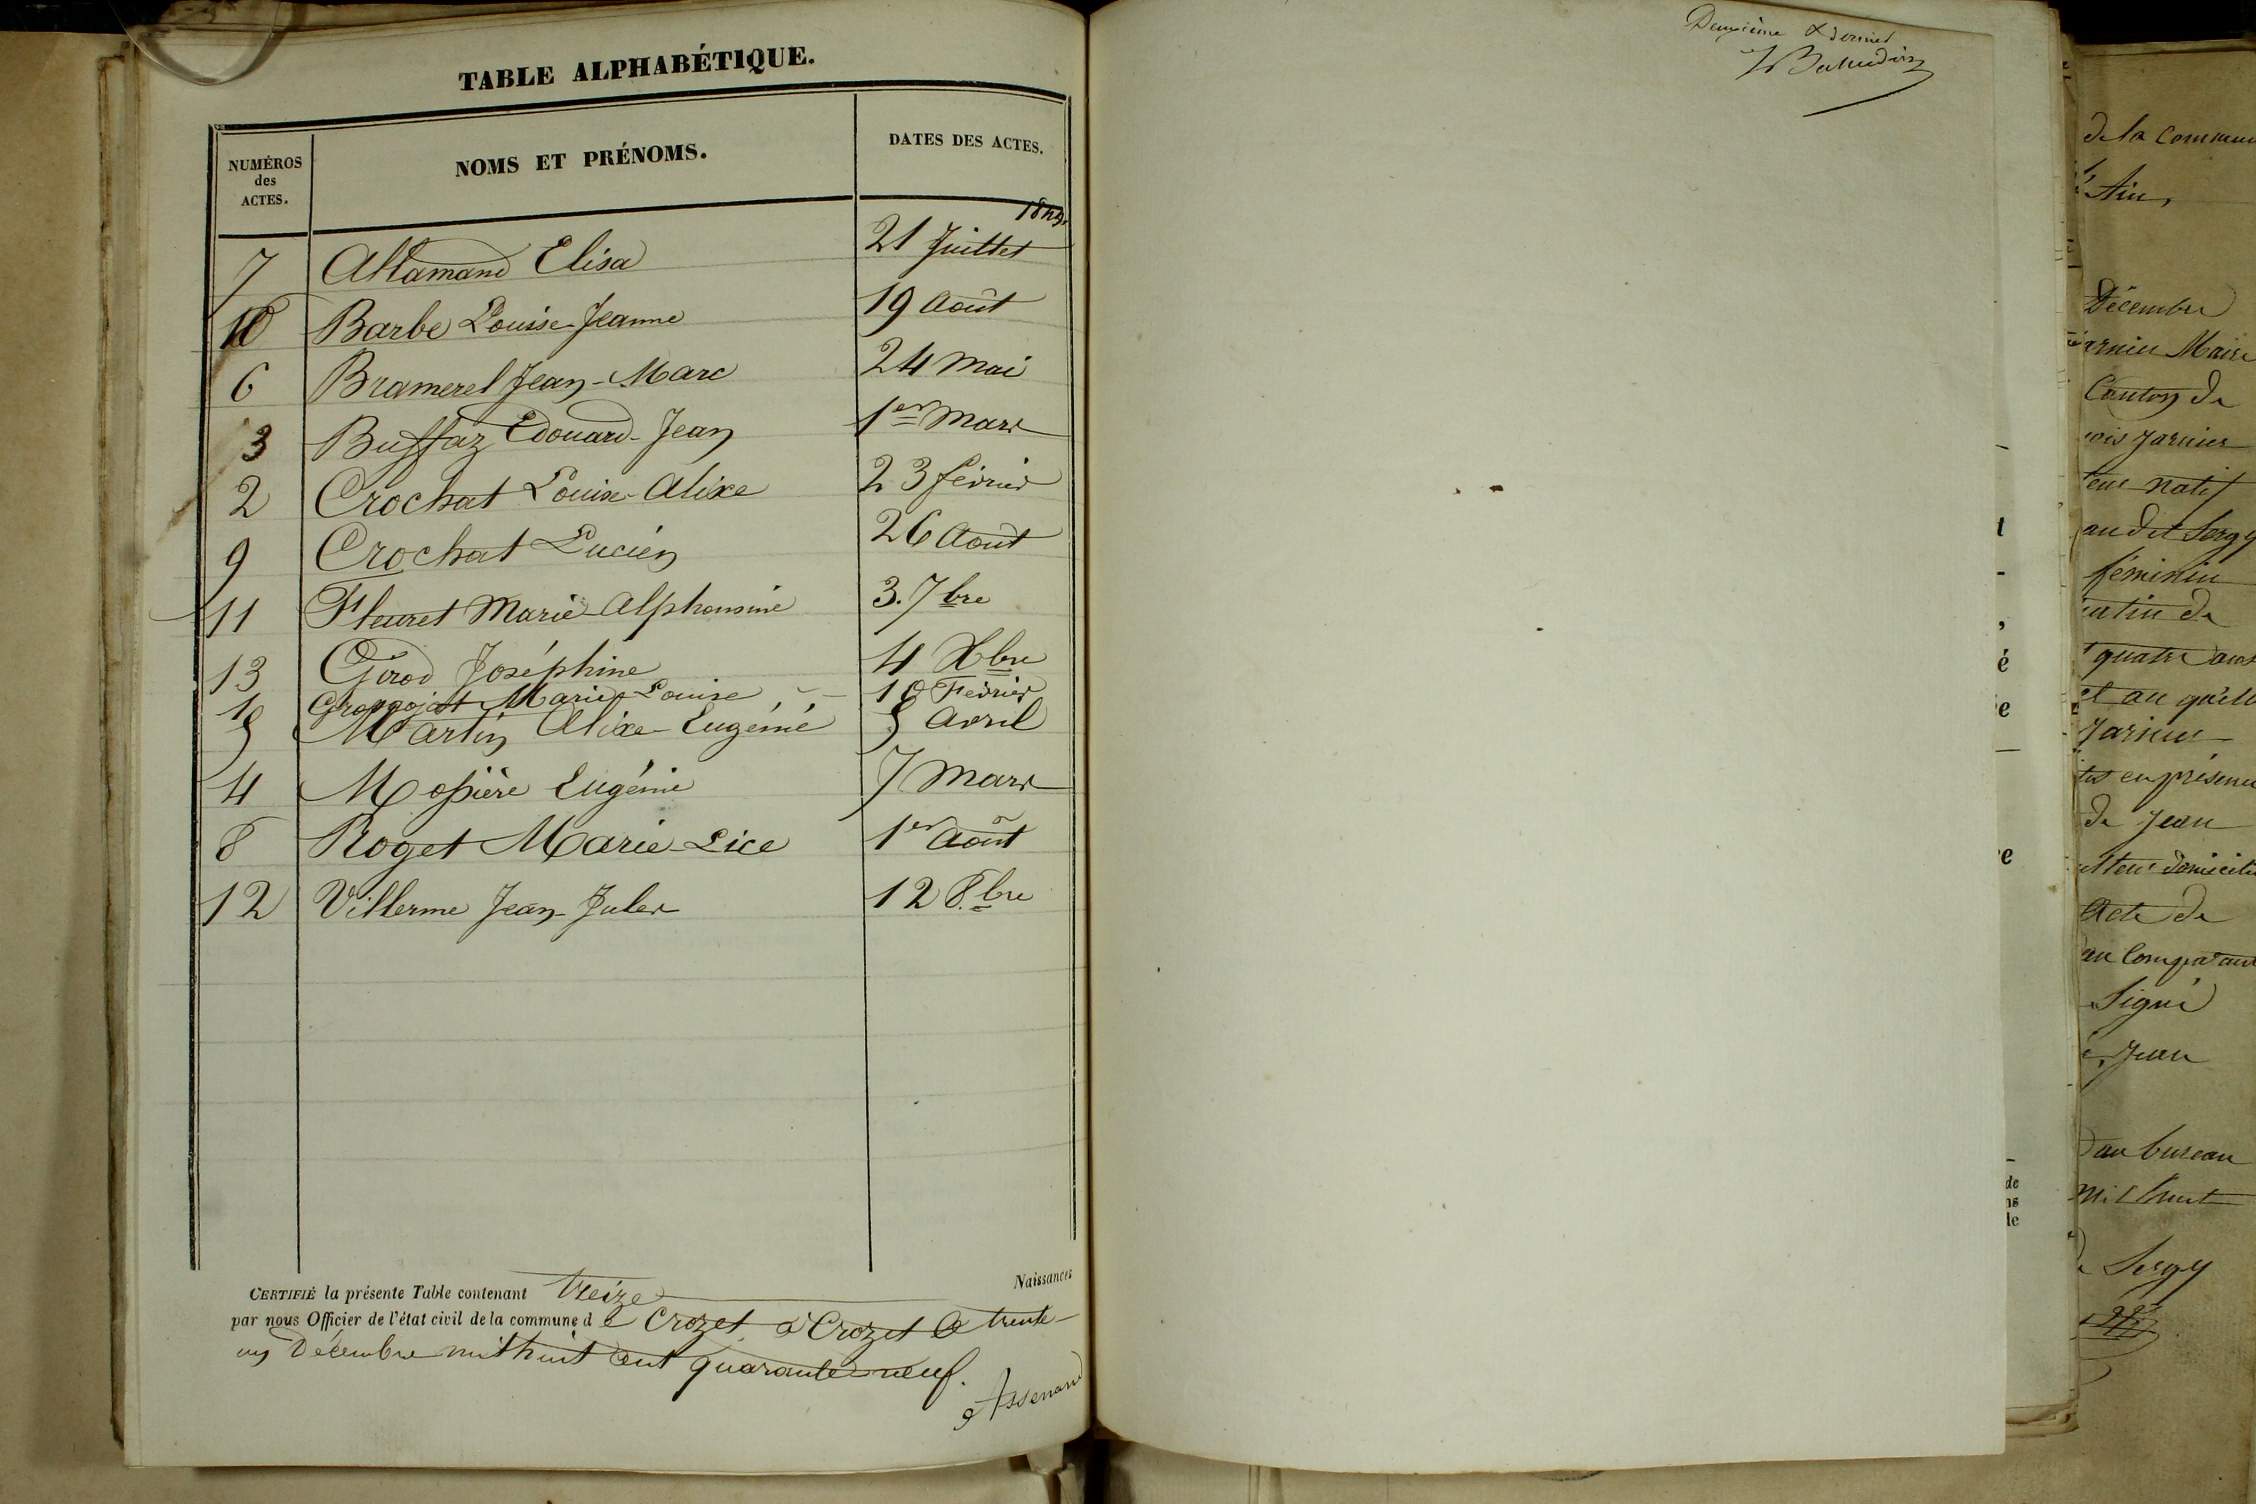 TABLE ALPHABÉTIQUE.
NUMÉROS des ACTES. NOMS ET PRÉNOMS. DATES DES ACTES.
1849.
7 Allamand Elisa 21 Juillet
10 Barbe Louise-Jeanne 19 Août
6 Bramerel Jean-Marc 24 Mai
3 Buffaz Edouard-Jean 1er Mars
2 Crochat Louise-Alixe 23 février
9 Crochat Lucien 26 Août
11 Fleuret Marie-Alphonsine 3. 7bre
13 Girod Joséphine 4 Xbre
1 Marie-Louise Février
5 Martin Alixe-Eugénie 5 Avril
4 Mossière Eugénie 7 Mars
8 Roget Marie-Lice 1er Août
12 Villerme Jean-Jules 12 8.bre
CERTIFIÉ la présente Table contenant treize Naissances
par nous Officier de l'état civil de la commune de Crozet à Crozet le trente-
un Décembre mil huit cent quarante neuf.
Deuxième & dernier
de la commun
Ain,
Décembre
Maire
Canton de
Jarnier
natif
au dit Sergy
féminin
de
quatre ans
Jarnier
en présence
de Jean
Acte de
au Comparant
Signé
Jean
au bureau
mil huit
Sergy